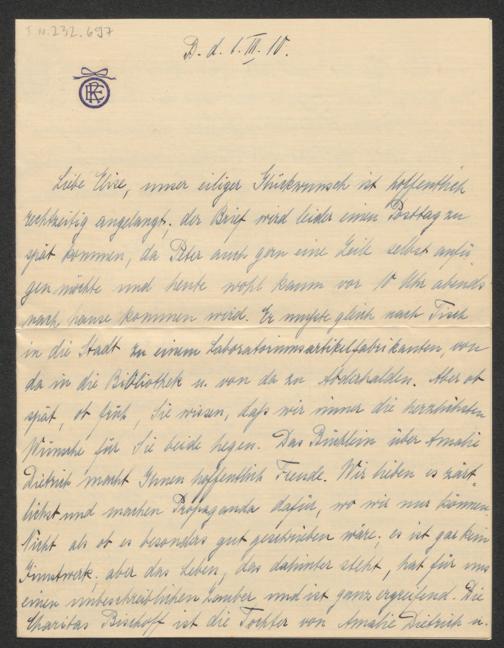 I.N. 232.697
D. d. 6. III. 10.
Liebe Elise, unser eiliger Glückwunsch ist hoffentlich
rechtzeitig angelangt; der Brief wird leider einen Posttag zu
spät kommen, da Peter auch gern eine Zeile selbst anfü-
gen möchte und heute wohl kaum vor 10 Uhr abends
nach hause kommen wird. Er musste gleich nach Tisch
in die Stadt zu einem Laboratoriumsartikelfabrikanten, von
da in die Bibliothek u. von da zu Abderhalden. Aber ob
spät, ob früh, Sie wissen, dass wir immer die herzlichsten
Wünsche für Sie beide hegen. Das Büchlein über Amalie
Dietrich macht Ihnen hoffentlich Freude. Wir lieben es zärt-
lichst und machen Propaganda dafür, wo wir nur können.
Nicht als ob es besonders gut geschrieben wäre; es ist gar kein
Kunstwerk, aber das Leben, das dahinter steht, hat für uns
einen unbeschreiblichen Zauber und ist ganz ergreifend. Die
Charitas Bischoff ist die Tochter von Amalie Dietrich u.